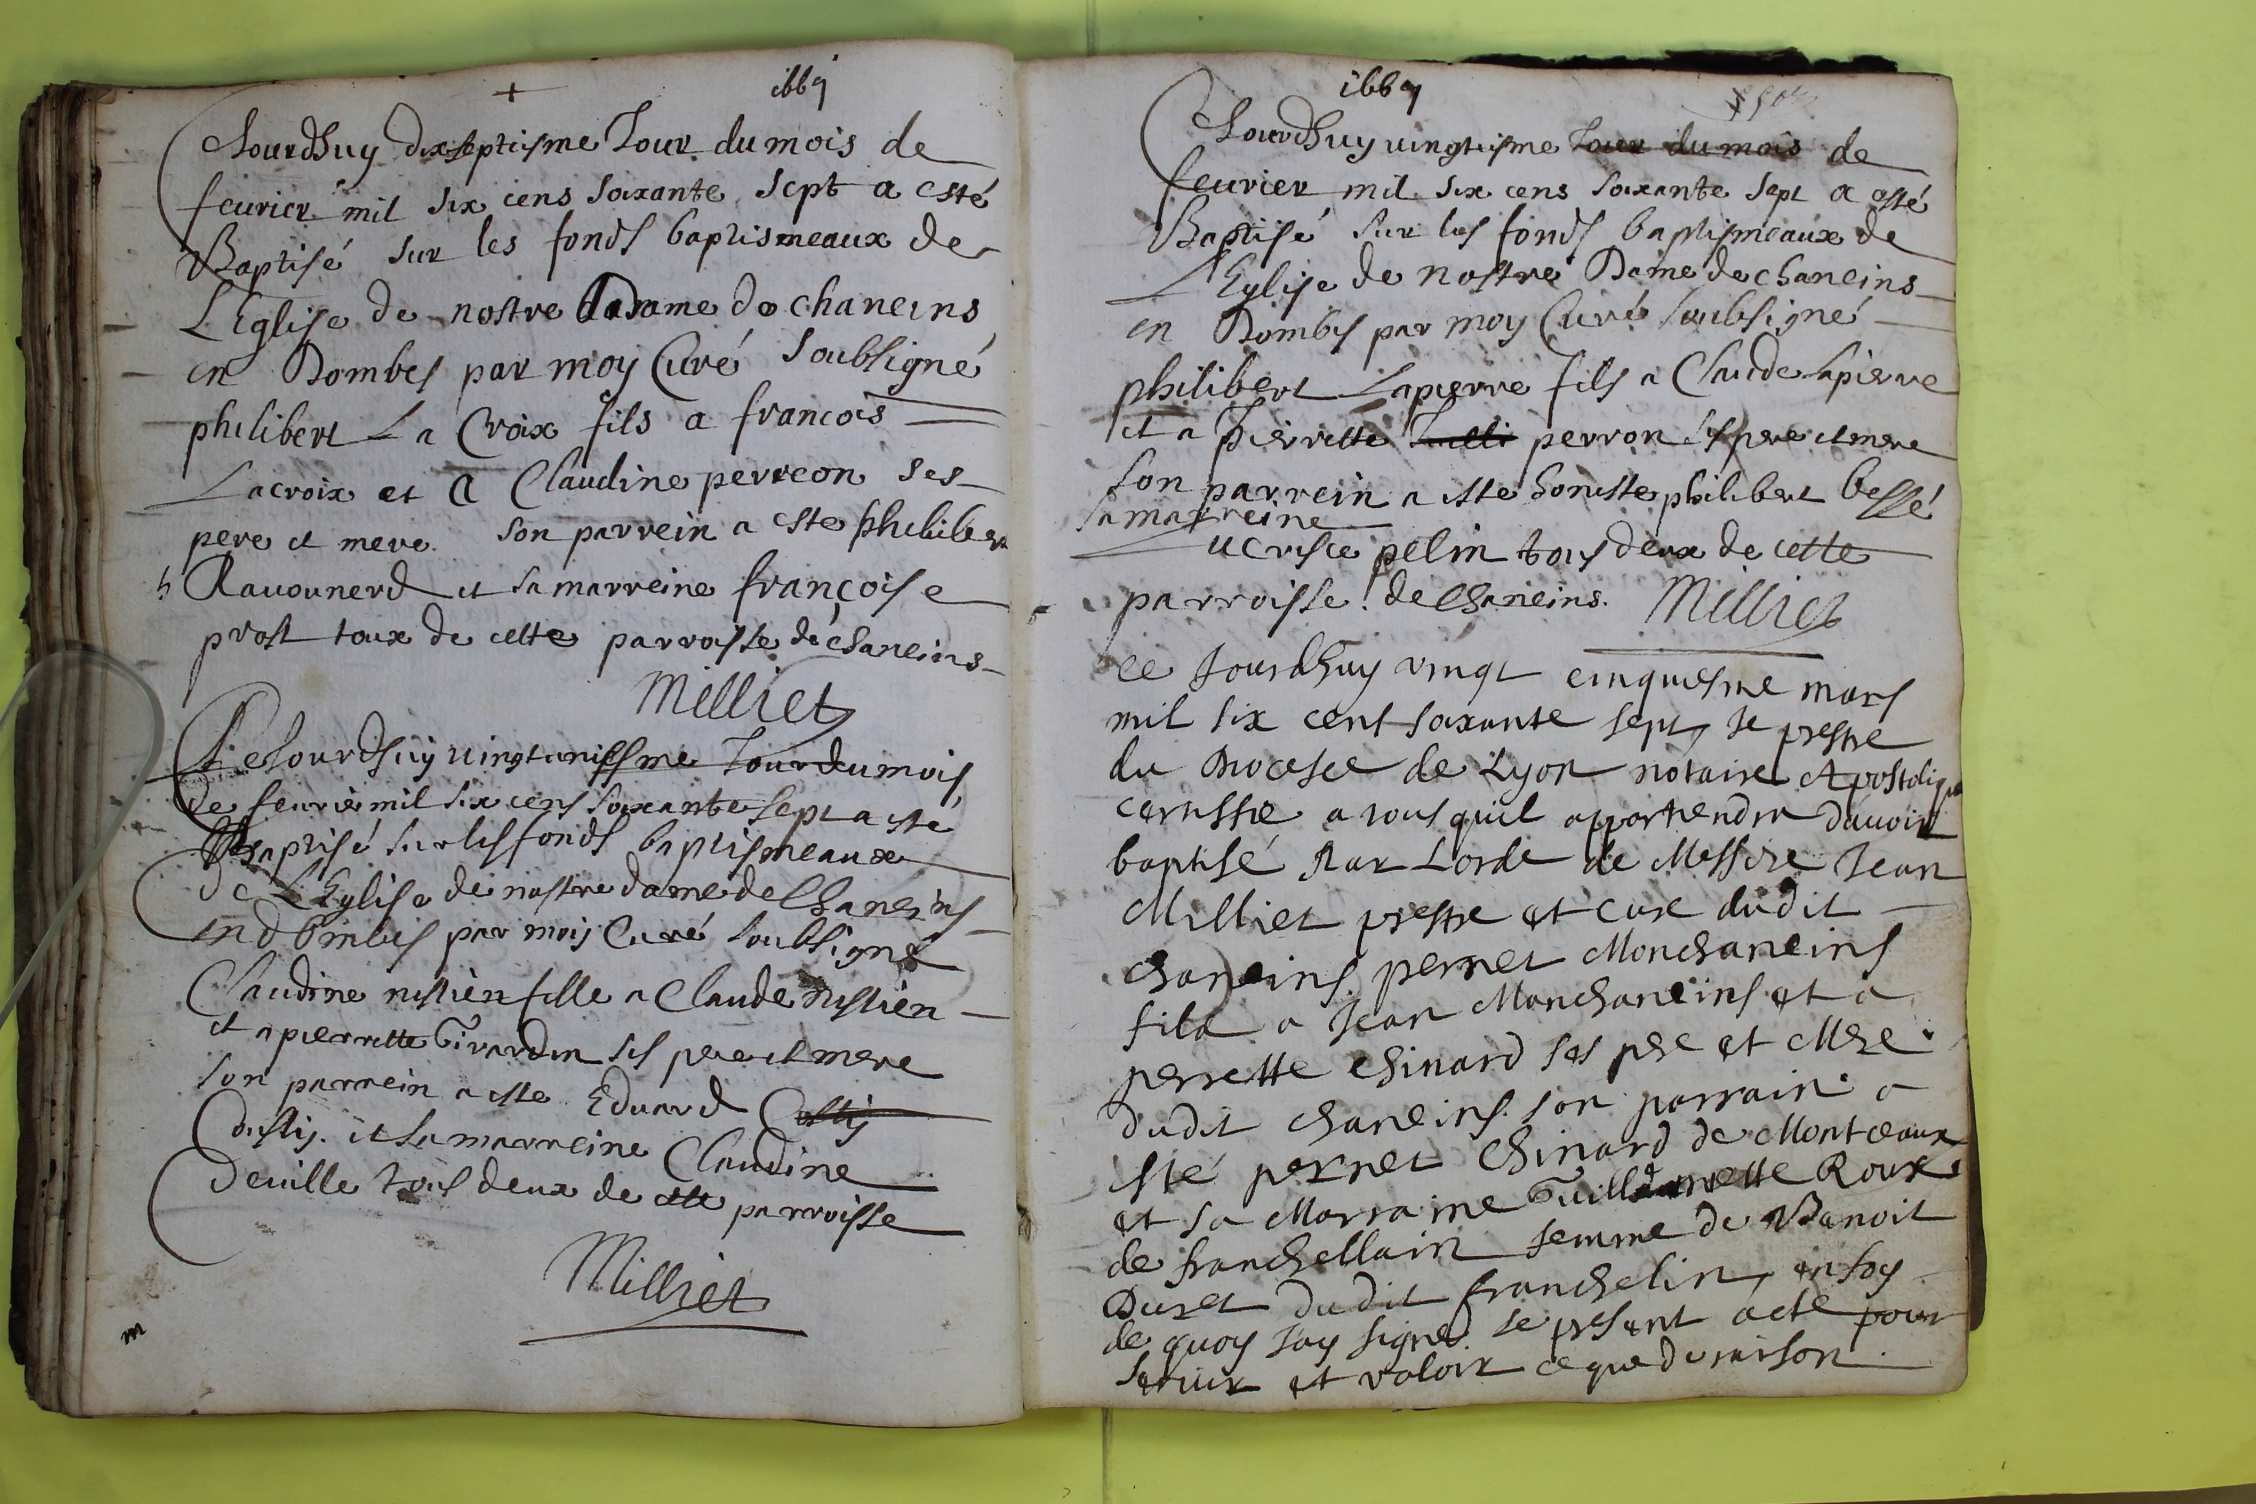 1667
Jourdhuy dixseptiesme Jour du mois de
feurier mil six cens soixante sept a esté
Baptisé sur les fonds baptismeaux de
L'Eglise de nostre dadame de chaneins
en Dombes par moy Curé soubsigné
philibert La Croix fils a francois
Lacroix et a Claudine perreon ses
pere et mere son parrein a este philibert
Rauounerd et sa marreine françoise
prost toux de cette parroisse de chaneins
Milliet
Ce Jourdhuy uingtuniesme Jour du mois
de feurie mil six cens soixante sept a esté
Baptisé sur les fonds baptismeaux
de L'Eglise de nostre dame de Chaneins
en dombes par moy Curé soubsigné
Claudine nistien fille a Claude nistien
et a pierrette Girardin ses pere et mere
son parrein a este Eduard Costij
Costij. et sa marreine Claudine
Deuille tous deux de cette parroisse
Milliet
m
1667
Jourdhuy uingtiesme Jour du mois de
feurier mil six cens soixante sept a esté
Baptisé sur les fonds baptismeaux de
L'Eglise de nostre Dame de chaneins
en Dombes par moy Curé soubsigné
philibert Lapierre fils a Claude Lapierre
et a Pierrette perron ses pere et mere
son parrein a este honeste philibert bessé
sa marreine
pelin tous deux de cette
parroisse de Chaneins. Milliet
ce Jourdhuy vingt cinquiesme mars
mil six cens soixante sept, Je prestre
du Diocese de Lyon notaire Apostolique
certiffie a tous quil appartiendra dauoir
baptisé Par Lordre de Messire Jean
Milliet prestre et cure dudit
chaneins. pernet Monchaneins
fils a Jean Monchaneins et a
perrette Chinard ses pere et Mere
dudit chaneins. son parrain a
este pernet Chinard de Montceaux
et sa Marraine Guillemette Roux
de franchellain femme de Benoit
Duret dudit franchelin, en foy
de quoy Jay signé le present acte pour
seruir et valoir ce que de raison.